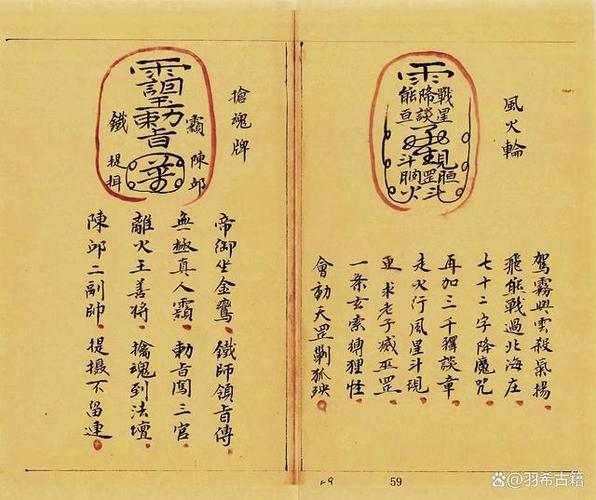 風火輪
戰星
降談
駕霧興雲殺氣揚
飛能戰過北海庄
七十二字降魔咒
再加三千獬談章
走火行風星斗現
求老子滅巫罡
一条玄索縛狸怪
會勅天罡剿狐殃
搶魂牌
勅旨
霸
陳邱
鐵
提
帝御坐金鸞。鐵師領旨傳
無極真人霸。勅旨闖三官
離火王善將。擒魂到法壇
陳邱二副帥。提摄不留連
59
@羽希古籍